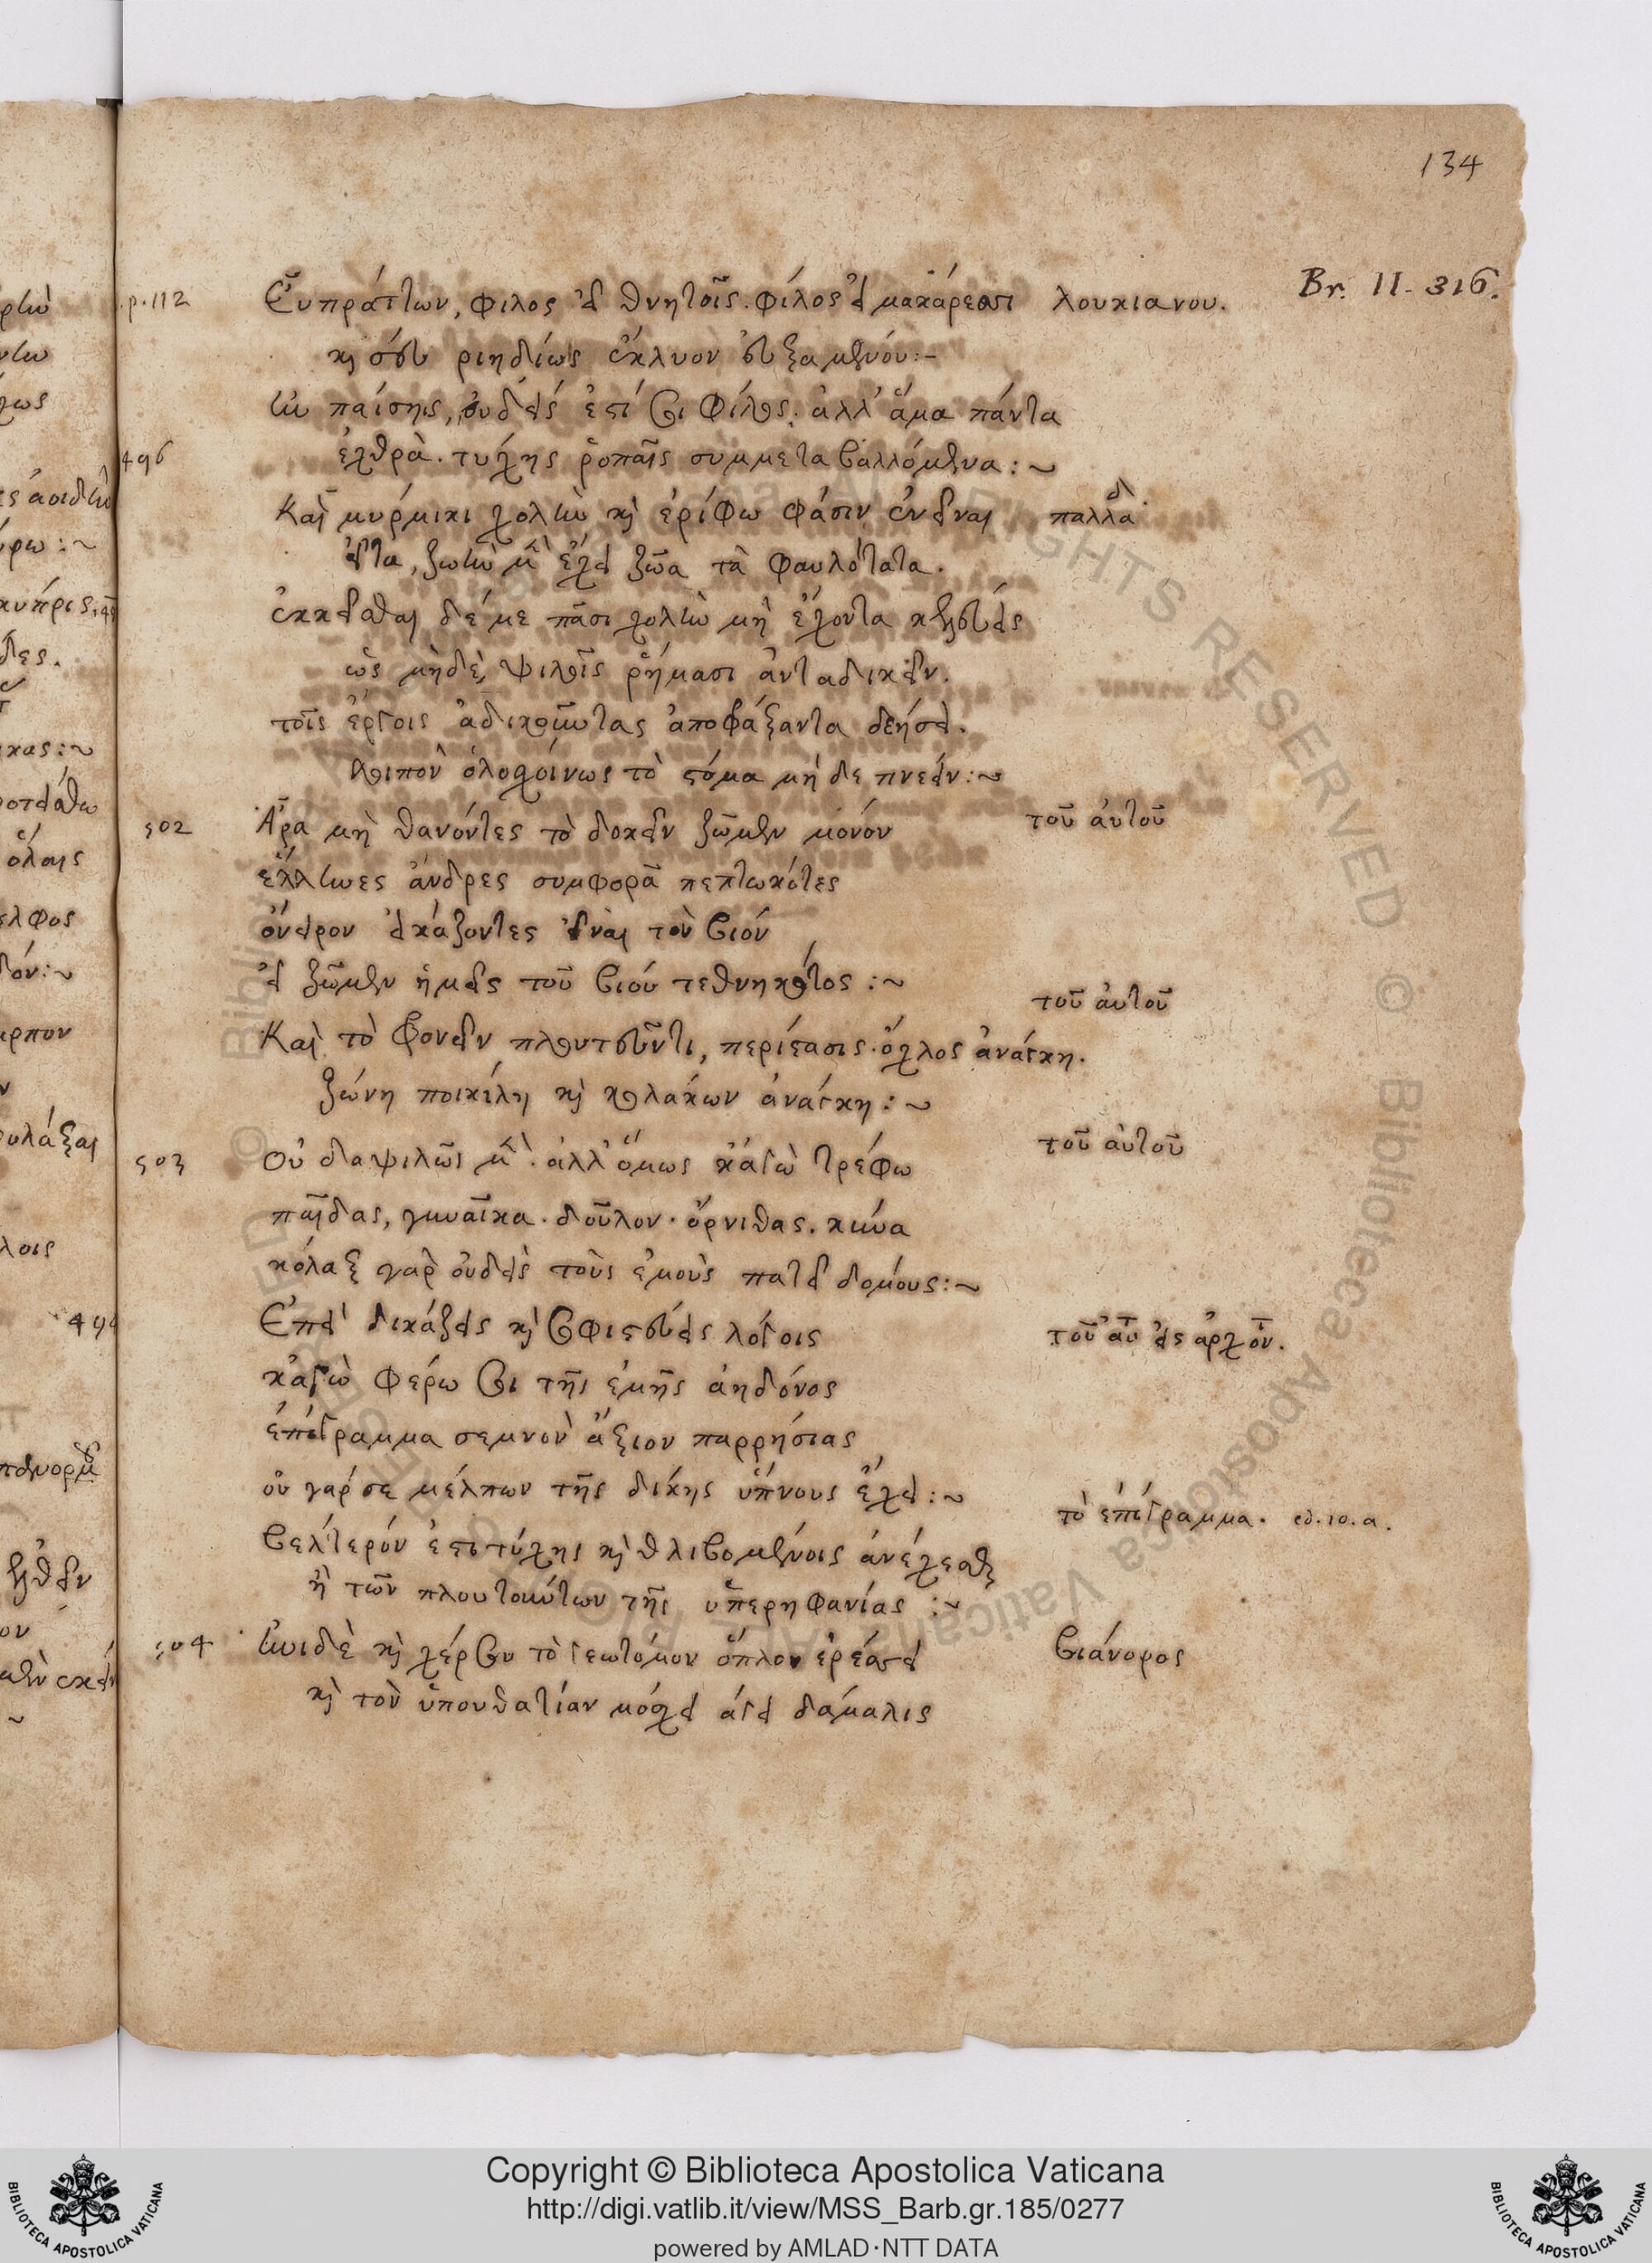 134
p.112 Εὐπράττων, φιλος εἶ θνητοῖς. φίλος εἶ μακάρεσσι λουκιανου. Br. II. 316.
καὶ σεῦ ρηϊδίως ἔκλυον εὐξαμένου:-
ἢν παίσηις, οὐδείς ἐστί σοι φίλος. ἀλλ' ἅμα πάντα
496 ἐχθρὰ. τυχης ῥοπαῖς συμμεταβαλλόμενα:~
Καὶ μύρμικι χολὴν καὶ ἐρίφω φάσιν ἐνεῖναι παλλαδ
εἶτα, ζωὴν μὲν ἔχει ζῶα τὰ φαυλότατα.
ἐκκεῖσθαι δέ με πᾶσι χολὴν μὴ ἔχοντα κελεύεις
ὡς μηδὲ, ψιλοῖς ῥήμασι ἀνταδικεῖν.
τοῖς ἔργοις ἀδικοῦντας ἀποφράξαντα δεήσει.
λοιπὸν ὁλοσχοίνως τὸ στόμα μή δε πνεεῖν:~
502 Ἆρα μὴ θανόντες τὸ δοκεῖν ζῶμεν μόνον τοῦ αὐτοῦ
ἕλληνες ἄνδρες συμφορᾶ πεπτωκότες
ὄνειρον εἰκάζοντες εἶναι τὸν βιόν
εἰ ζῶμεν ἡμεῖς τοῦ βιού τεθνηκότος:~
Καὶ τὸ φρονεῖν πλουτοῦντι, περίστασις. ὄχλος ἀνάγκη. τοῦ αὐτοῦ
ζώνη ποικίλη καὶ κολάκων ἀνάγκη:~
503 Οὐ δαψιλῶς μὲν. ἀλλ' ὅμως κἀγὼ τρέφω τοῦ αὐτοῦ
παῖδας, γυναῖκα. δοῦλον. ὄρνιθας. κύνα
κόλαξ γαρ οὐδεὶς τοὺς ἐμοὺς πατεῖ δομους:~
Ἐπεὶ δικάζεις καὶ σοφιστεύεις λόγοις τοῦ αὐτ εἰς ἄρχοντ.
κἀγὼ φέρω σοι τῆς ἐμῆς ἀηδόνος
ἐπίγραμμα σεμνὸν ἄξιον παρρησίας
οὐ γαρ σε μέλπων τῆς δίκης ὕπνους ἔχει:~
Βελτερόν ἐστι τύχης καὶ θλιβομένοις ἀνέχεσθαι τὸ ἐπίγραμμα. ed. 10. a.
ἢ τῶν πλουτούντων τῆς ὑπερηφανίας:~
504 Ἠνίδε καὶ χέρσου τὸ γεωτόμον ὅπλον ἐρέσσει βιάνορος
καὶ τὸν ὑπουθατίαν μόσχει ἄγει δάμαλις
Copyright © Biblioteca Apostolica Vaticana
http://digi.vatlib.it/view/MSS_Barb.gr.185/0277
powered by AMLAD·NTT DATA